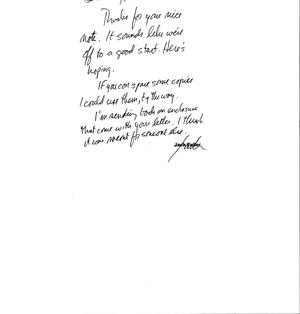 Thanks for your nice
note. It sounds like we're
off to a good start. Here's
hoping.
If you can spare some copies
I could use them, by the way.
I'm sending back an enclosure
that came with your letter. I think
it was meant for someone else.